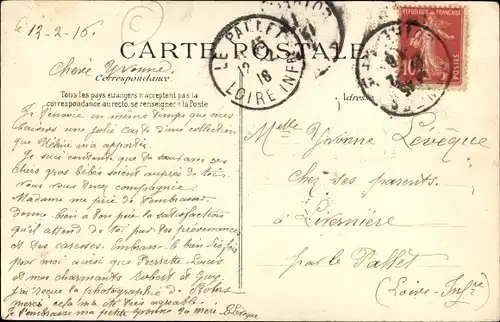 12-2-16
CARTE POSTALE
LE PALLET
12
16
LOIRE INFRE
REPUBLIQUE FRANÇAISE
10
Chère Yvonne
Correspondance.
Tous les pays étrangers n'acceptent pas la
correspondance au recto, se renseigner à la Poste
Adresse
Je t'envoie en même temps que mes
une jolie carte d'une collection
que m'a apporté.
Je suis contente que
chers gros bébés soient auprès de toi
vous vous tenez compagnie.
Madame me prie de t'embrasser.
Donne bien à ton père la satisfaction
qu'il attend de toi par tes prévenances
et tes caresses. Embrasse le bien
pour moi ainsi que Pierrette
et mes charmants Robert et Guy.
J'ai reçue la photographie de
merci cela m'a été très agréable.
Je t'embrasse ma petite Yvonne ta
Melle Yvonne Lévêque
Chez ses parents
à
par le Pallet
(Loire-Infre)